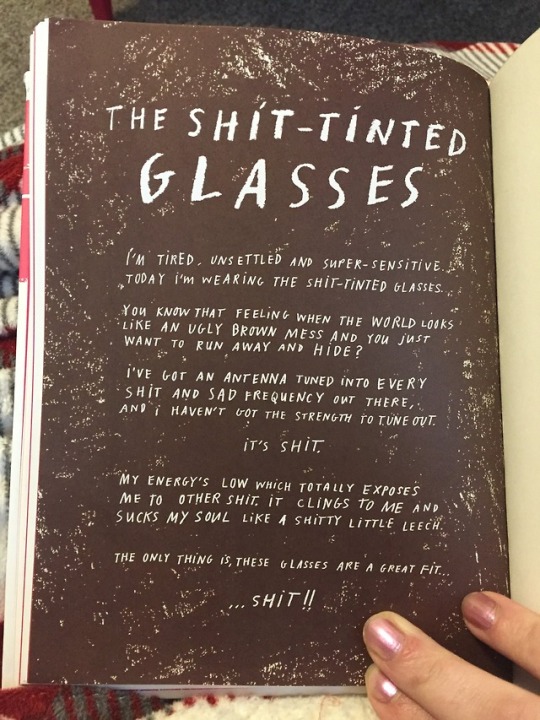 THE SHIT-TINTED
GLASSES
I'M TIRED, UNSETTLED AND SUPER-SENSITIVE...
TODAY I'M WEARING THE SHIT-TINTED GLASSES...
YOU KNOW THAT FEELING WHEN THE WORLD LOOKS
LIKE AN UGLY BROWN MESS AND YOU JUST
WANT TO RUN AWAY AND HIDE?
I'VE GOT AN ANTENNA TUNED INTO EVERY
SHIT AND SAD FREQUENCY OUT THERE,
AND I HAVEN'T GOT THE STRENGTH TO TUNE OUT.
IT'S SHIT.
MY ENERGY'S LOW WHICH TOTALLY EXPOSES
ME TO OTHER SHIT. IT CLINGS TO ME AND
SUCKS MY SOUL LIKE A SHITTY LITTLE LEECH.
THE ONLY THING IS, THESE GLASSES ARE A GREAT FIT...
...SHIT!!